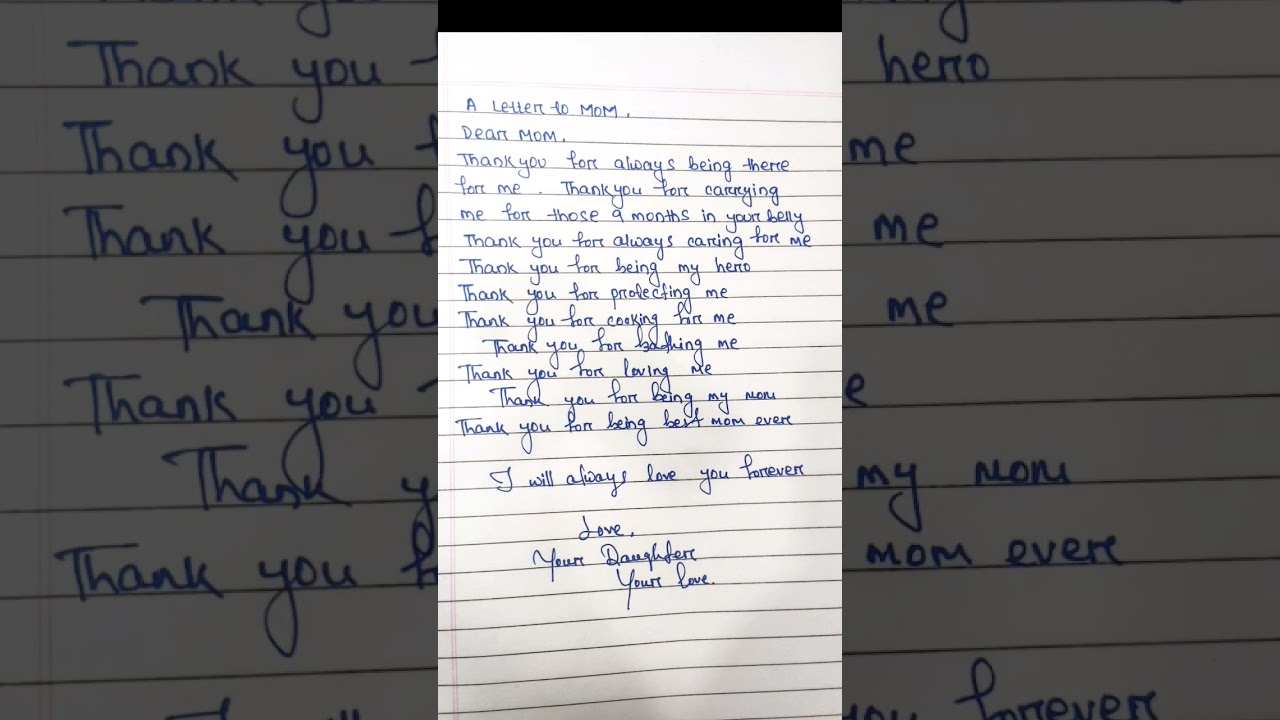 A Letter to MOM,
Dear MOM,
Thankyou for always being there
for me. Thankyou for carrying
me for those 9 months in your belly
Thank you for always caring for me
Thank you for being my hero
Thank you for protecting me
Thank you for cooking for me
Thank you for bathing me
Thank you for loving me
Thank you for being my mom
Thank you for being best mom ever
I will always love you forever
Love,
Your Daughter
Your love.